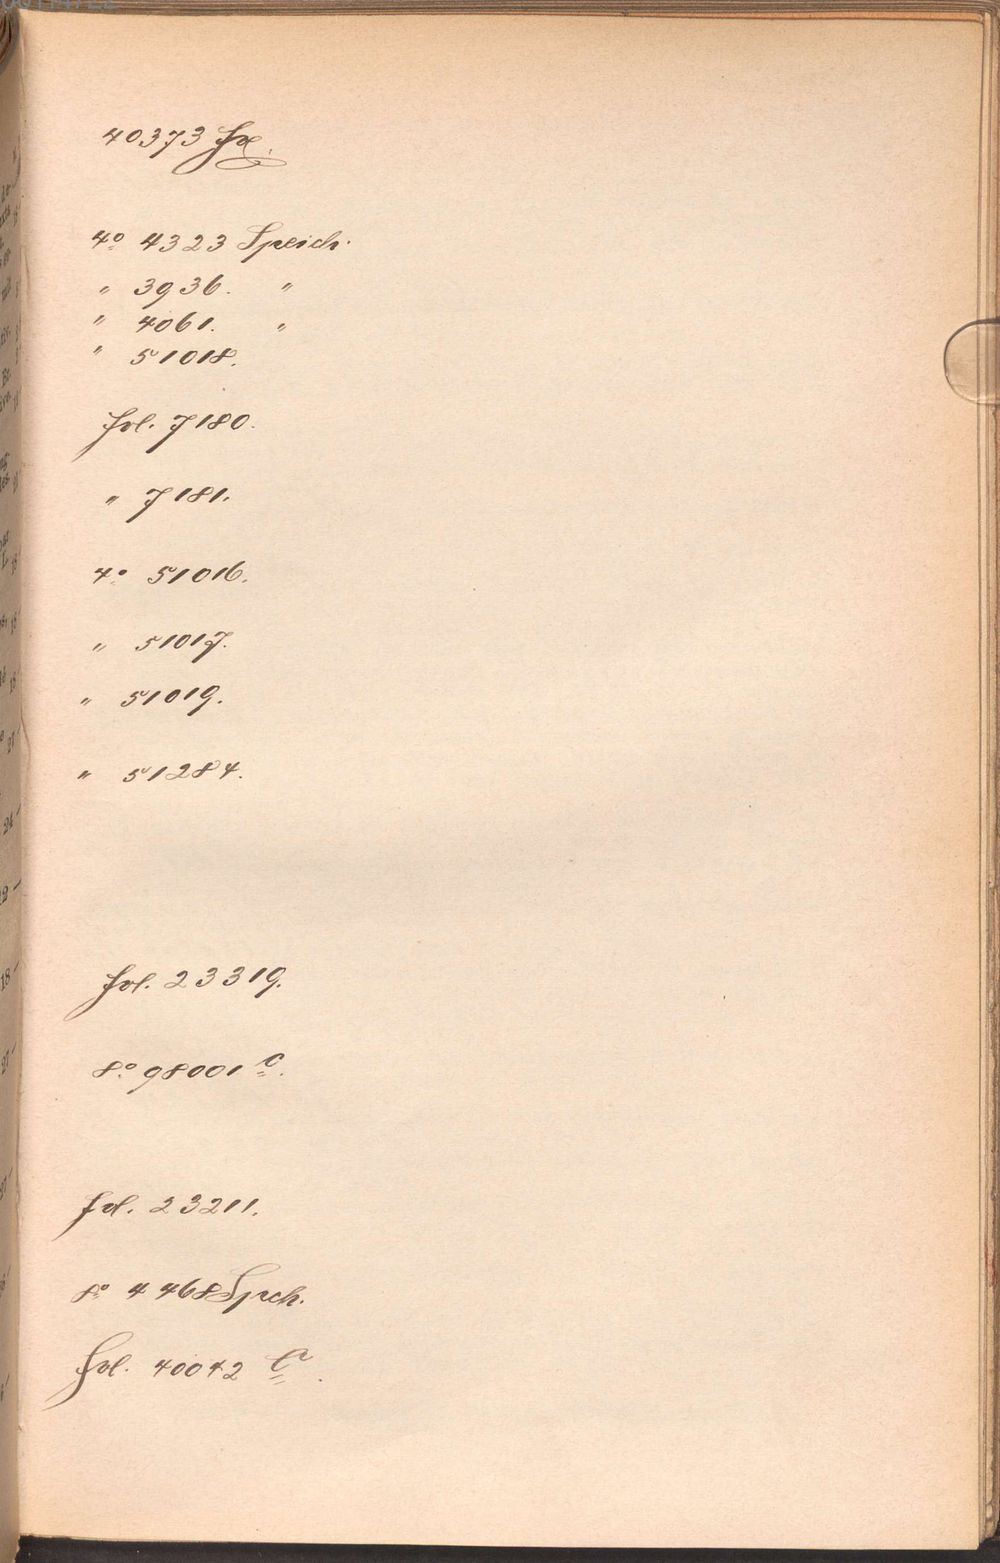 40373
4º 4323 Speich.
" 3936. "
" 4061. "
" 51018.
fol. 7180.
" 7181.
4º 51016.
" 51017.
" 51019.
" 51284.
fol. 23319.
8º 98001 c.
fol. 23211.
8º 4468 Spch.
fol. 40042